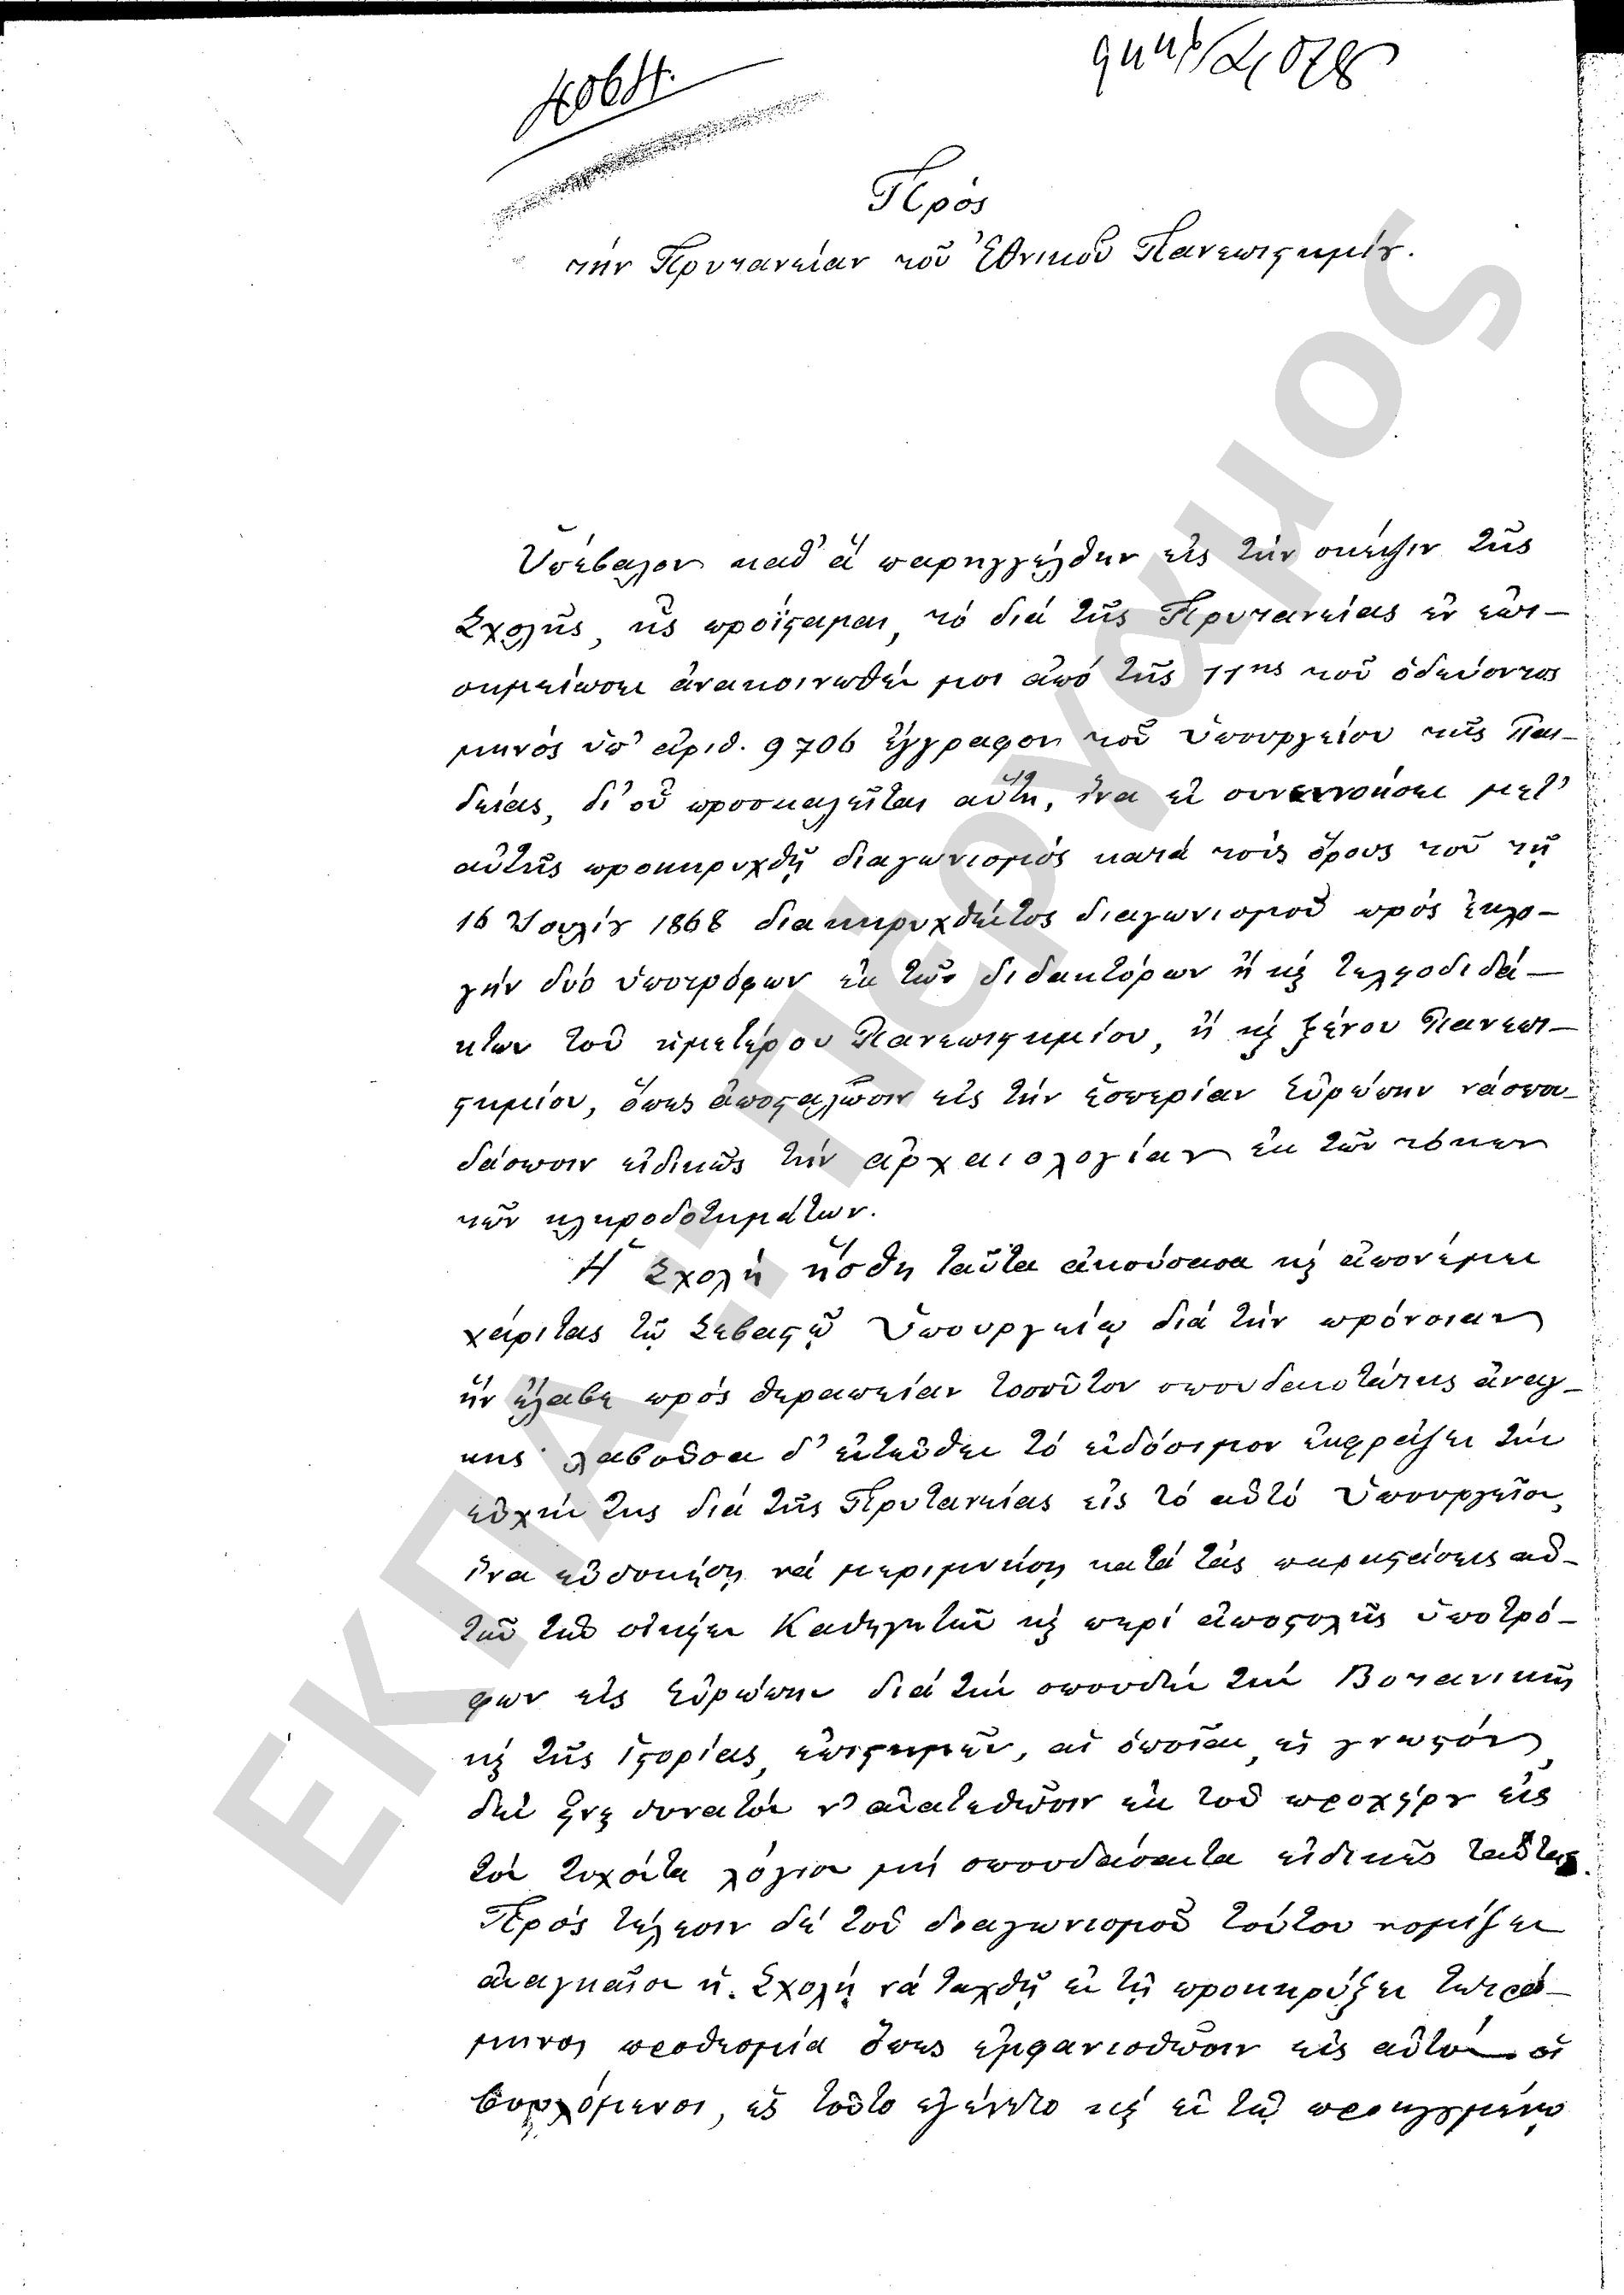 4064.
Πρός
τήν Πρυτανείαν τοῦ Ἐθνικοῦ Πανεπιστημίου.
Ὑπέβαλον καθ' ἅ παρηγγέλθην εἰς τήν σκέψιν τῆς
Σχολῆς, ἧς προΐσταμαι, τό διά τῆς Πρυτανείας ἐν ἐπι-
σημειώσει ἀνακοινωθέν μοι ἀπό τῆς 11ης τοῦ ὁδεύοντος
μηνός ὑπ' ἀριθ. 9706 ἔγγραφον τοῦ Ὑπουργείου τῆς Παι-
δείας, δι' οὗ προσκαλεῖται αὕτη, ἵνα ἐν συνεννοήσει μετ'
αὐτῆς προκηρυχθῇ διαγωνισμός κατά τούς ὅρους τοῦ τῇ
16 Ἰουλίου 1868 διακηρυχθέντος διαγωνισμοῦ πρός ἐκλο-
γήν δύο ὑποτρόφων ἐκ τῶν διδακτόρων ἤ καί τελειοδιδά-
κτων τοῦ ἡμετέρου Πανεπιστημίου, ἤ καί ξένου Πανεπι-
στημίου, ὅπως ἀποσταλῶσιν εἰς τήν ἑσπερίαν Εὐρώπην νά σπου-
δάσωσιν εἰδικῶς τήν ἀρχαιολογίαν ἐκ τῶν τόκων
τῶν κληροδοτημάτων.
Ἡ Σχολή ἥσθη ταῦτα ἀκούσασα καί ἀπονέμει
χάριτας τῷ Σεβαστῷ Ὑπουργείῳ διά τήν πρόνοιαν
ἥν ἔλαβε πρός θεραπείαν τοσοῦτον σπουδαιοτάτης ἀνάγ-
κης· λαβοῦσα δ' ἐντεῦθεν τό ἐνδόσιμον ἐκφράζει τήν
εὐχήν της διά τῆς Πρυτανείας εἰς τό αὐτό Ὑπουργεῖον,
ἵνα εὐδοκήσῃ νά μεριμνήσῃ κατά τάς παραστάσεις αὐ-
τῶν τῶν οἰκείων Καθηγητῶν καί περί ἀποστολῆς ὑποτρό-
φων εἰς Εὐρώπην διά τήν σπουδήν τῆς Βοτανικῆς
καί τῆς ἱστορίας, ἐπιστημῶν, αἱ ὁποῖαι, ὡς γνωστόν,
δέν εἶνε δυνατόν ν' ἀνατεθῶσιν ἐκ τοῦ προχείρου εἰς
τόν τυχόντα λόγιον μή σπουδάσαντα εἰδικῶς ταύτας.
Πρός τέλεσιν δέ τοῦ διαγωνισμοῦ τούτου νομίζει
ἀναγκαῖον ἡ Σχολή νά ταχθῇ ἐν τῇ προκηρύξει τετρά-
μηνος προθεσμία ὅπως ἐμφανισθῶσιν εἰς αὐτόν οἱ
βουλόμενοι, ὡς τοῦτο ἐγένετο καί ἐν τῷ προηγουμένῳ
ΕΚΠΑ - Περγαμος